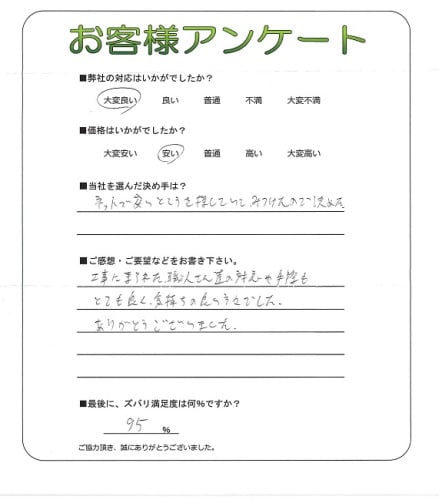 お客様アンケート
■弊社の対応はいかがでしたか？
大変良い 良い 普通 不満 大変不満
■価格はいかがでしたか？
大変安い 安い 普通 高い 大変高い
■当社を選んだ決め手は？
ネットで安いところを探していて、みつけたので決めた
■ご感想・ご要望などをお書き下さい。
工事に来られた職人さん達の対応や手際も
とても良く、気持ちの良い方々でした。
ありがとうございました。
■最後に、ズバリ満足度は何％ですか？
95 ％
ご協力頂き、誠にありがとうございました。